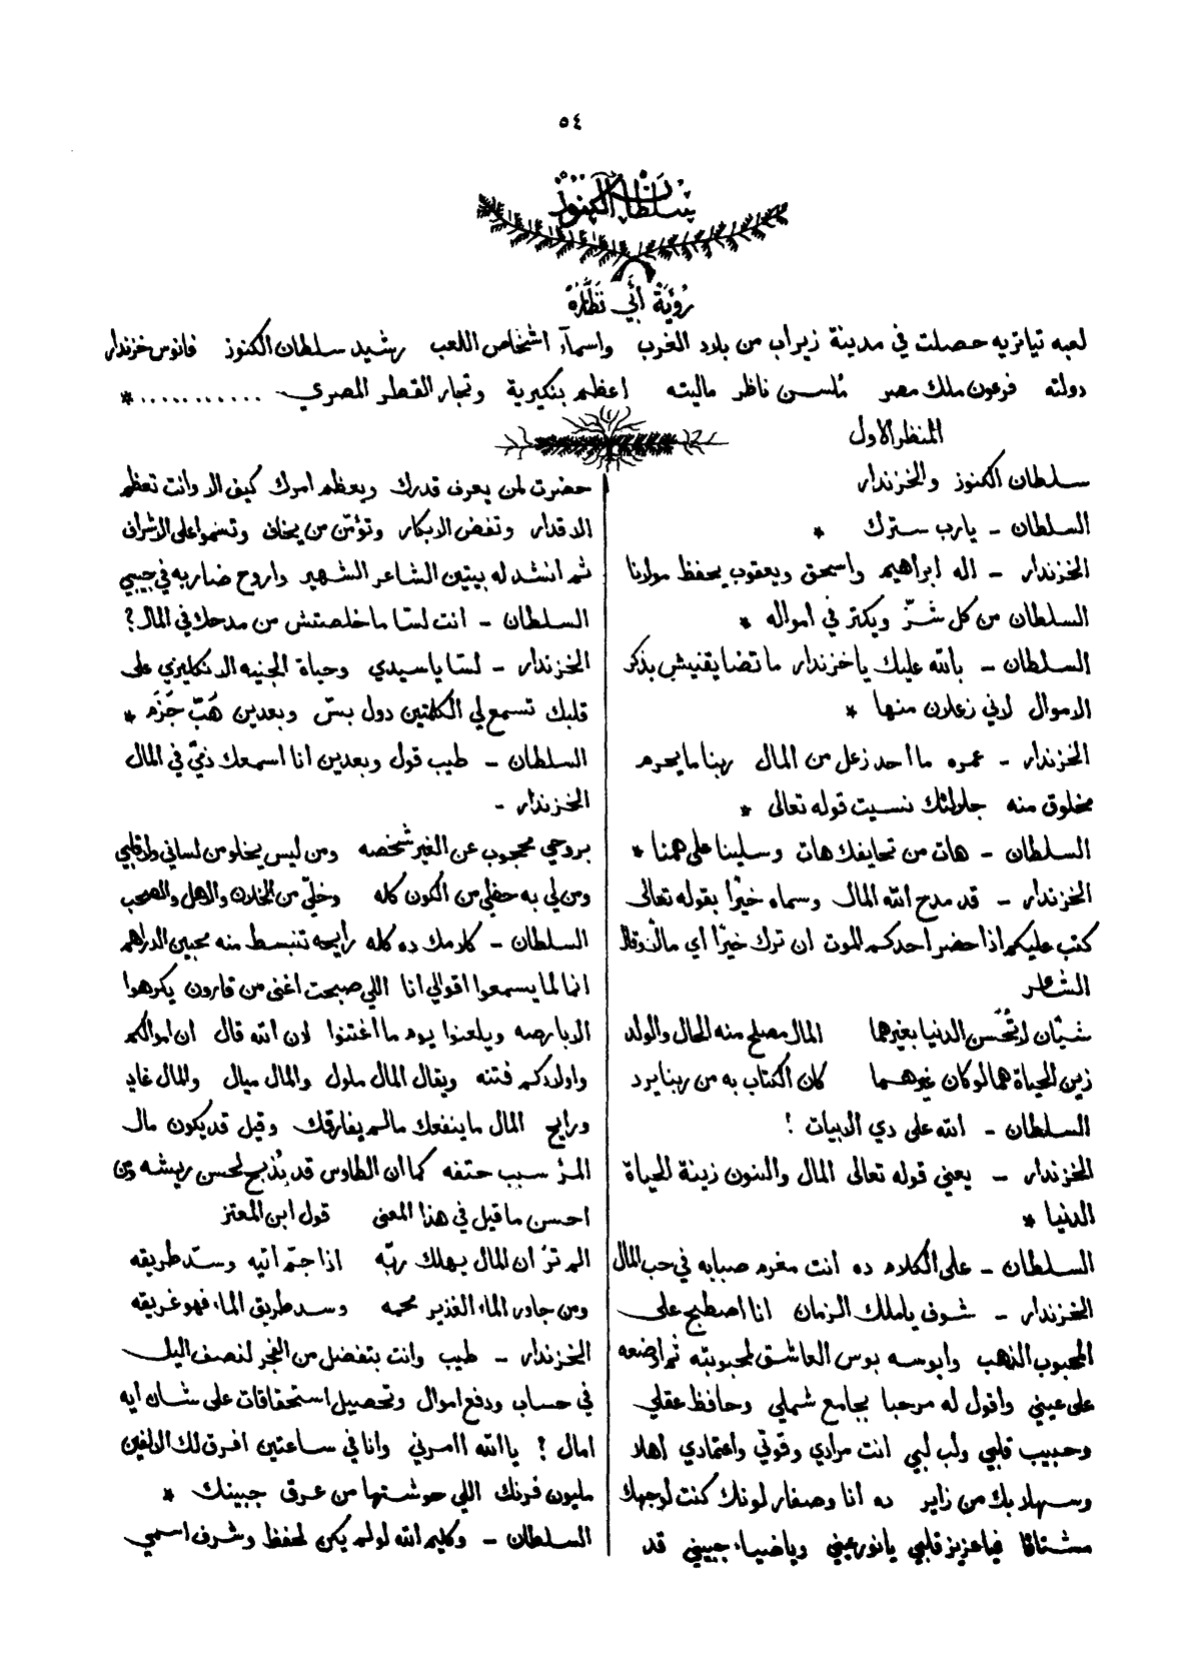 ٥٤
سلطان الكنوز
رؤية أبي نظارة
لعبه تياتريه حصلت في مدينة زيراب من بلاد الغرب واسمآء اشخاص اللعب رشيد سلطان الكنوز فانوس خزندار
دولته فرعون ملك مصر مُلسن ناظر ماليته اعظم بنكيرية وتجار القطر المصري ........... *
المنظر الاول
سلطان الكنوز والخزندار
السلطان - يارب سترك *
الخزندار - اله ابراهيم واسحق ويعقوب يحفظ مولانا
السلطان من كل شرّ ويكتر في امواله *
السلطان - بالله عليك ياخزندار ما تضايقنيش بذكر
الاموال لاني زعلان منها *
الخزندار - عمره ما احد زعل من المال ربنا مايحرم
مخلوق منه جلالتك نسيت قوله تعالى *
السلطان - هات من تحايفك هات وسلينا على همنا *
الخزندار - قد مدح الله المال وسماه خيرًا بقوله تعالى
كتب عليكم اذا حضر احدكم الموت ان ترك خيرًا اي مالًا وقال
الشاعر
شيئان لا تحسن الدنيا بغيرهما المال مصلح منه الحال والولد
زين الحياة هما لو كان غيرهما كان الكتاب به من ربنا يرد
السلطان - الله على دي البيات !
الخزندار - يعني قوله تعالى المال والبنون زينة الحياة
الدنيا *
السلطان - على الكلام ده انت مغرم صبابه في حب المال
الخزندار - شوف ياملك الزمان انا اصطبح على
المحبوب الذهب وابوسه بوس العاشق لمحبوبته ثم اوضعه
على عيني واقول له مرحبا بجامع شملي وحافظ عقلي
وحبيب قلبي ولب لبي انت مرادي وقوتي واعتمادي اهلا
وسهلا بك من زاير ده انا وصفار لونك كنت لوجهك
مشتاقا فياعزيز قلبي يانور عيني وياضياء جبيني قد
حضرت لمن يعرف قدرك ويعظم امرك كيف لا وانت تعظم
الاقدار وتفض الابكار وتؤمّن من يخاف وتسموا على الاشراف
ثم انشد له بيتين الشاعر الشهير واروح ضاربه في جيبي
السلطان - انت لسّا ما خلصتش من مدحك في المال؟
الخزندار - لسّا ياسيدي وحياة الجنيه الانكليزي على
قلبك تسمع لي الكلمتين دول بسّ وبعدين هَبّ جَزَم *
السلطان - طيب قول وبعدين انا اسمعك ذمّي في المال
الخزندار -
بروحي محجوب عن الغير شخصه ومن ليس يخلو من لساني ولا قلبي
ومن لي به حظي من الكون كله وخلّي من الخلان والاهل والصحب
السلطان - كلامك ده كله رايحه تنبسط منه محبين الدراهم
انما لما يسمعوا اقوالي انا اللي صبحت اغنى من قارون يكرهوا
الابارصه ويلعنوا يوم ما اغتنوا لان الله قال ان اموالكم
واولادكم فتنه ويقال المال ملول والمال ميال والمال غادٍ
ورايح المال ما ينفعك مالم يفارقك وقيل قد يكون مال
المرء سبب حتفه كما ان الطاوس قد يُذبح لحسن ريشه ومن
احسن ما قيل في هذا المعنى قول ابن المعتز
الم ترَ ان المال يهلك ربّه اذا جمّ آتيه وسدّ طريقه
ومن جاور الماء الغذير محمه وسد طريق الماء فهو غريقه
الخزندار - طيب وانت بتفضل من الفجر لنصف اليل
في حساب ودفع اموال وتحصيل استحقاقات على شان ايه
امال ؟ ياالله اامرني وانا في ساعتين افرق لك الالفين
مليون فرنك اللي حوشتها من عرق جبينك *
السلطان - وكليم الله لولم يكن لحفظ وشرف اسمي